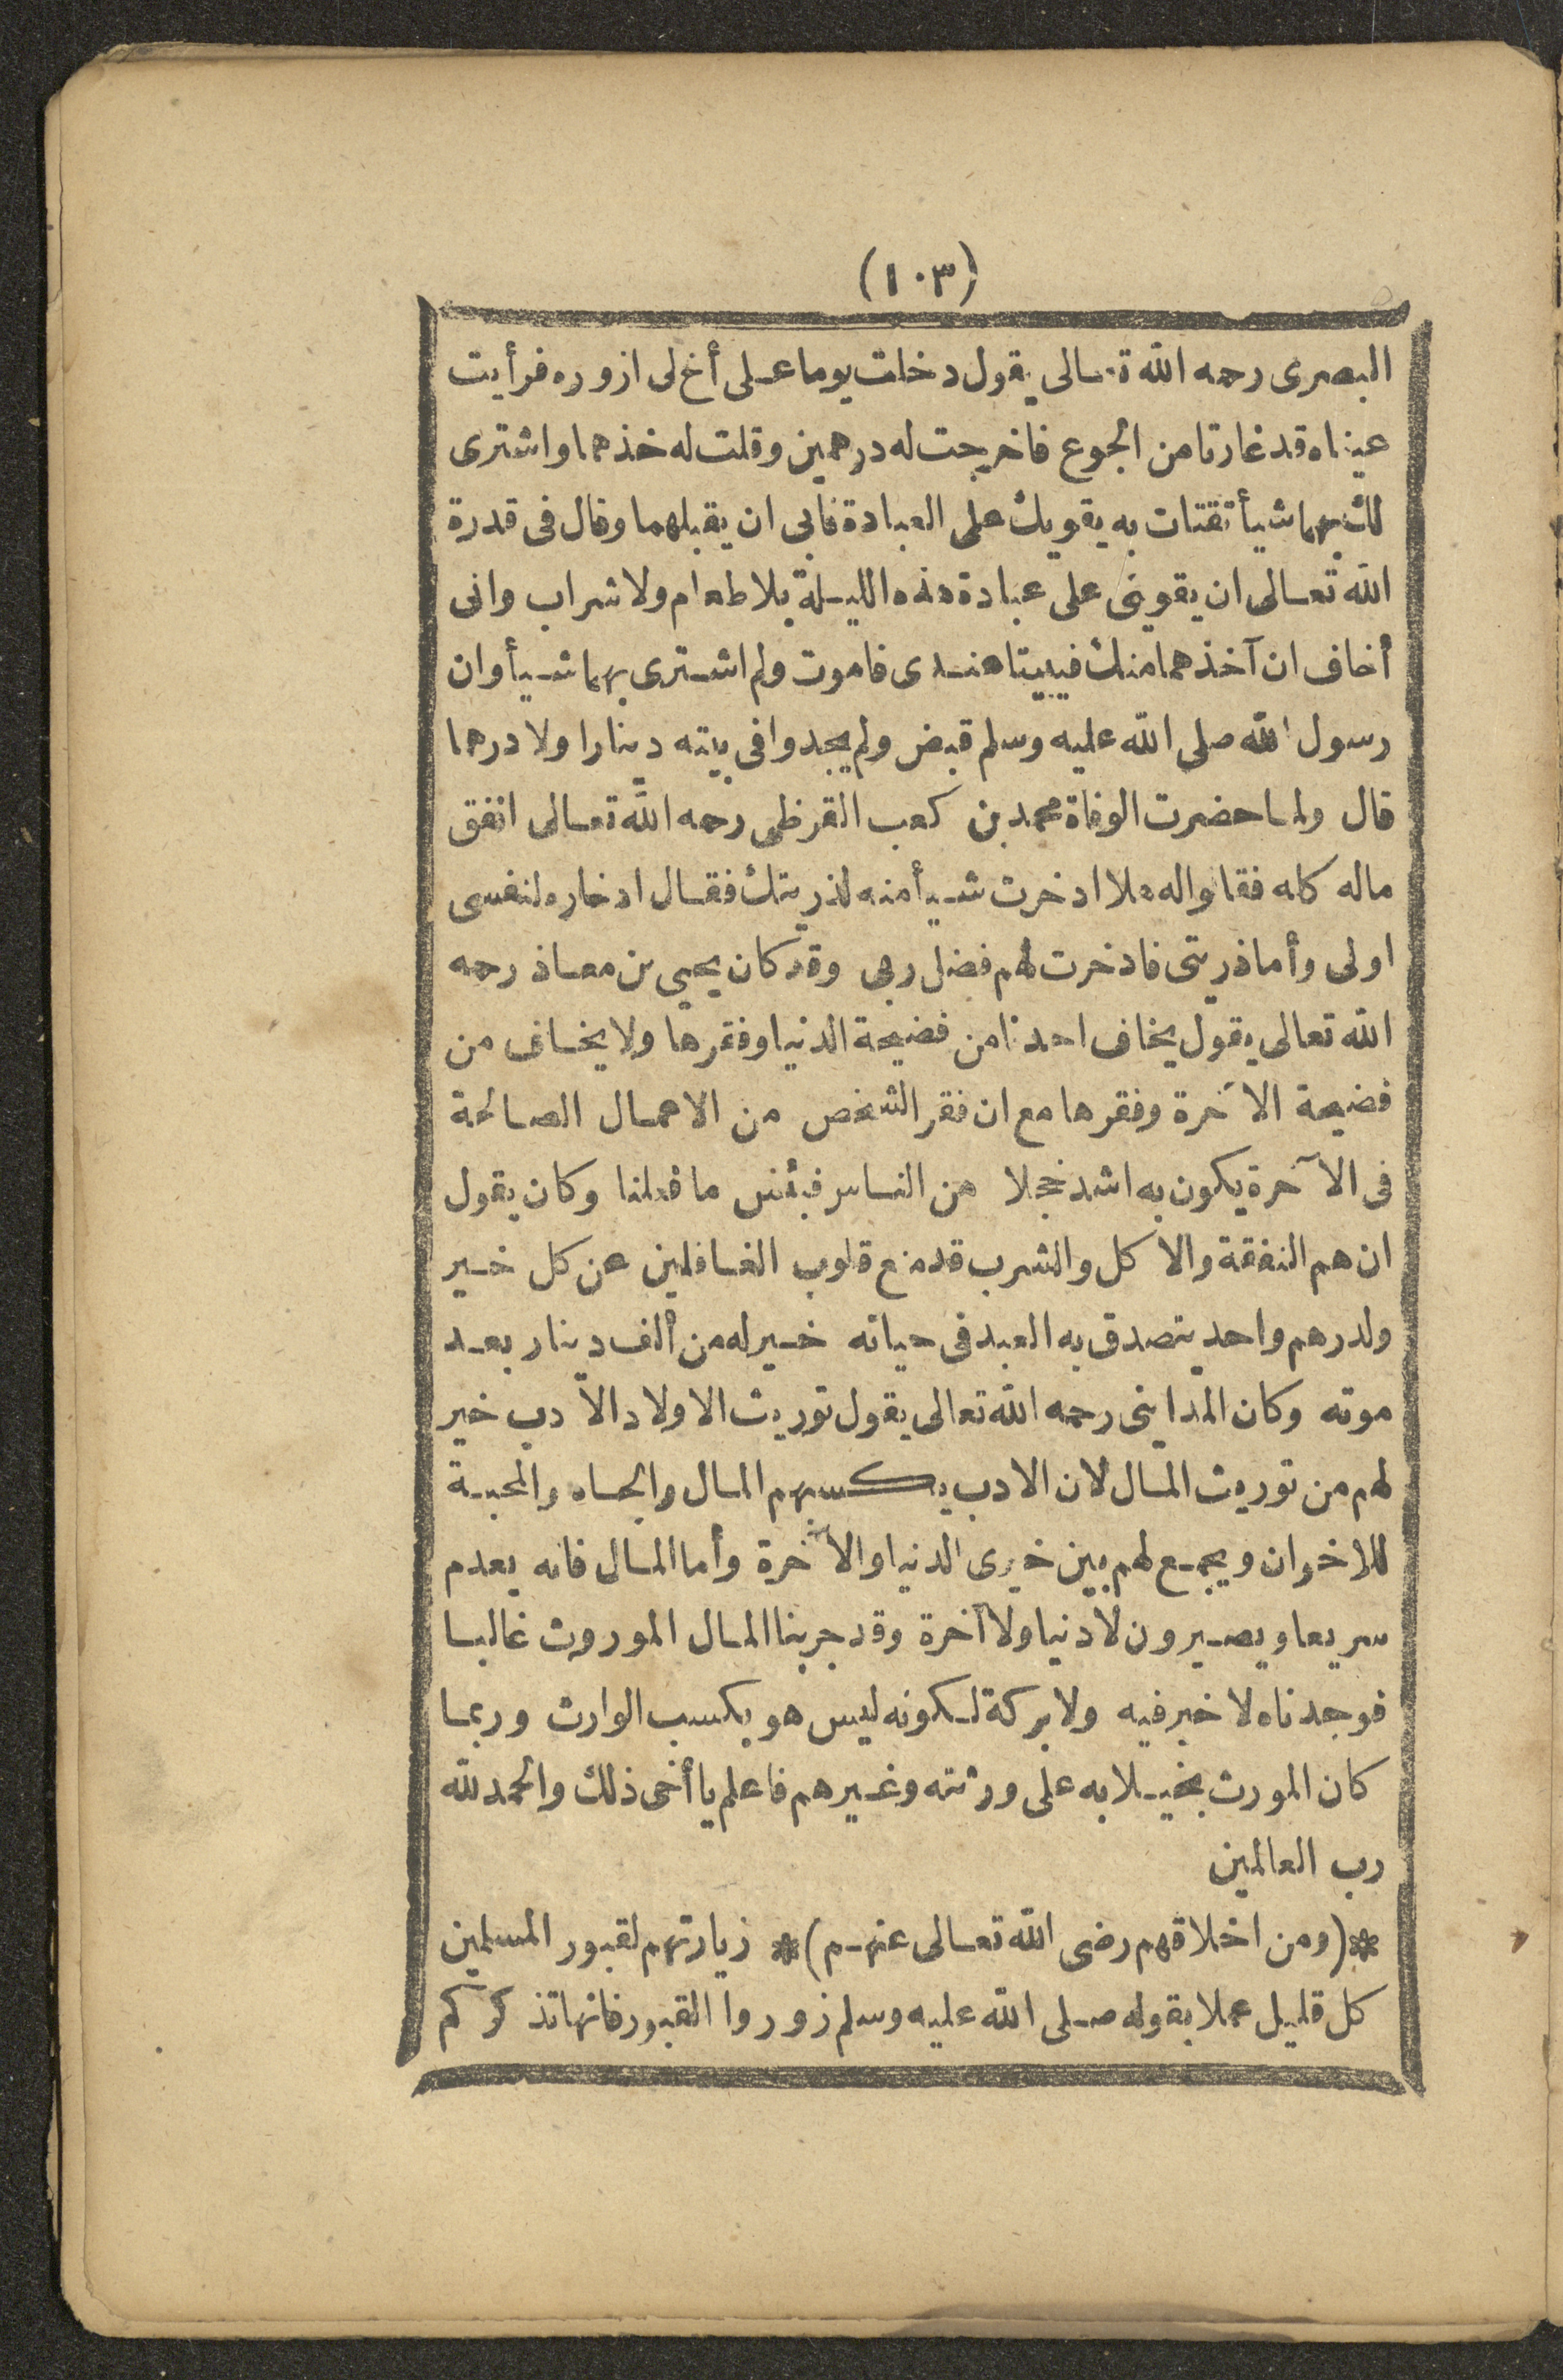 (١٠٣)
البصرى رحمه الله تعالى يقول دخلت يوما على أخ لى ازوره فرأيت
عيناه قد غارتا من الجوع فاخرجت له درهمين وقلت له خذهما واشترى
لك بهما شيأ تقتات به يقويك على العبادة فابى ان يقبلهما وقال فى قدرة
الله تعالى ان يقوينى على عبادة هذه الليلة بلا طعام ولا شراب وانى
أخاف ان آخذهما منك فيبيتا عندى فاموت ولم اشترى بهما شيأ وان
رسول الله صلى الله عليه وسلم قبض ولم يجدوا فى بيته دينارا ولا درهما
قال ولما حضرت الوفاة محمد بن كعب القرظى رحمه الله تعالى انفق
ماله كله فقالوا له هلا ادخرت شيأ منه لذريتك فقال ادخاره لنفسى
اولى وأما ذريتى فادخرت لهم فضل ربى وقد كان يحيى بن معاذ رحمه
الله تعالى يقول يخاف احدنا من فضيحة الدنيا وفقرها ولا يخاف من
فضيحة الآخرة وفقرها مع ان فقر الشخص من الاعمال الصالحة
فى الآخرة يكون به اشد خجلا من الناس فبئس ما فعلنا وكان يقول
ان هم النفقة والاكل والشرب قد منع قلوب الغافلين عن كل خير
ولدرهم واحد يتصدق به العبد فى حياته خير له من ألف دينار بعد
موته وكان المداينى رحمه الله تعالى يقول توريث الاولاد الأدب خير
لهم من توريث المال لان الادب يكسبهم المال والجاه والمحبة
للاخوان ويجمع لهم بين خيرى الدنيا والآخرة وأما المال فانه يعدم
سريعا ويصيرون لا دنيا ولا آخرة وقد جربنا المال الموروث غالبا
فوجدناه لا خير فيه ولا بركة لكونه ليس هو بكسب الوارث وربما
كان المورث بخيلا به على ورثته وغيرهم فاعلم يا أخى ذلك والحمد لله
رب العالمين
*(ومن اخلاقهم رضى الله تعالى عنهم)* زيارتهم لقبور المسلمين
كل قليل عملا بقوله صلى الله عليه وسلم زوروا القبور فانها تذكركم